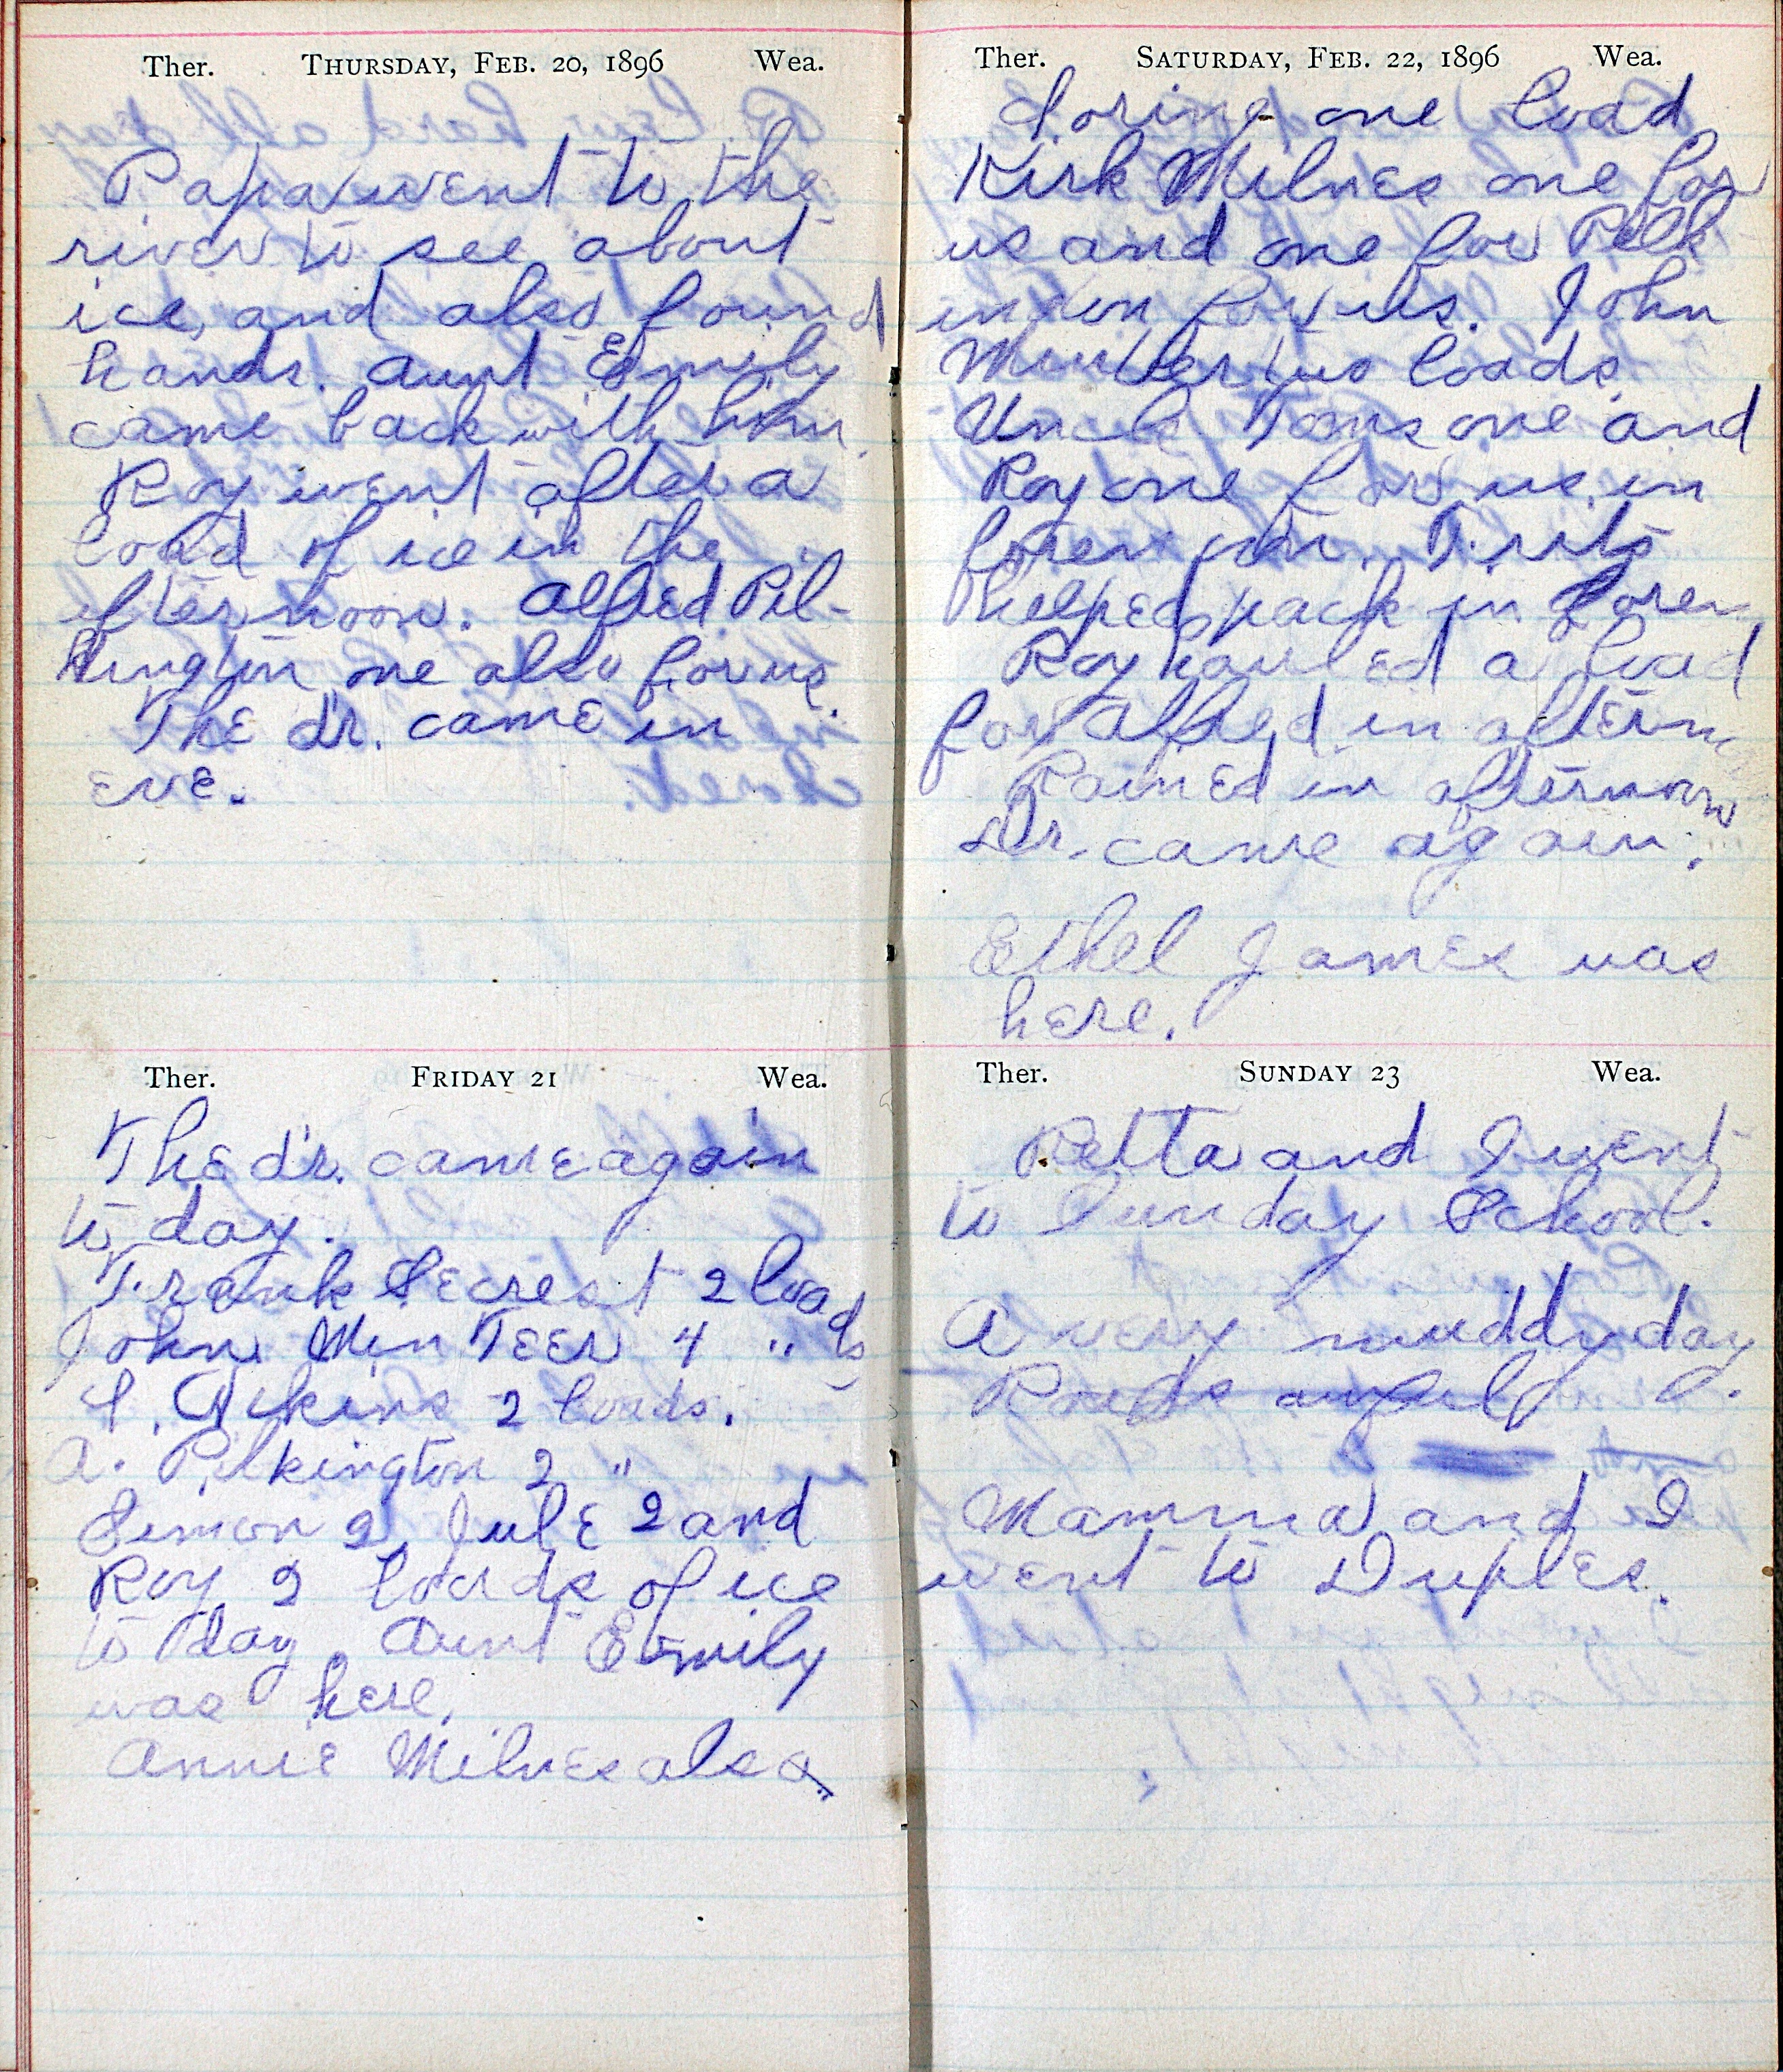 Ther. THURSDAY, FEB. 20, 1896 Wea.
Papa went to the
river to see about
ice and also found
hands. Aunt Emily
came back with him.
Roy went after a
load of ice in the
afternoon. Alfred Pil-
kington one also for us.
The dr. came in
eve.
Ther. FRIDAY 21 Wea.
The dr. came again
to day.
Frank Secrest 2 loads
John MinTeer 4 " 
2 loads.
A. Pilkington 2 "
Simon 2 Jule 2 and
Roy 2 loads of ice
to day. Aunt Emily
was here.
Annie Milnes also.
Ther. SATURDAY, FEB. 22, 1896 Wea.
Loring one load
Kirk Milnes one for
us and one for Pilk
ington for us. John
Minteer two loads.
Uncle Toms one and
Roy one for us in
forenoon. Frits
helped pack in foren
Roy hauled a load
for Alfred in aftern
Rained in afternoon
Dr. came again.
Ethel James was
here.
Ther. SUNDAY 23 Wea.
Retta and I went
to Sunday School.
A very muddy day
Roads
Mamma and I
went to Duples.